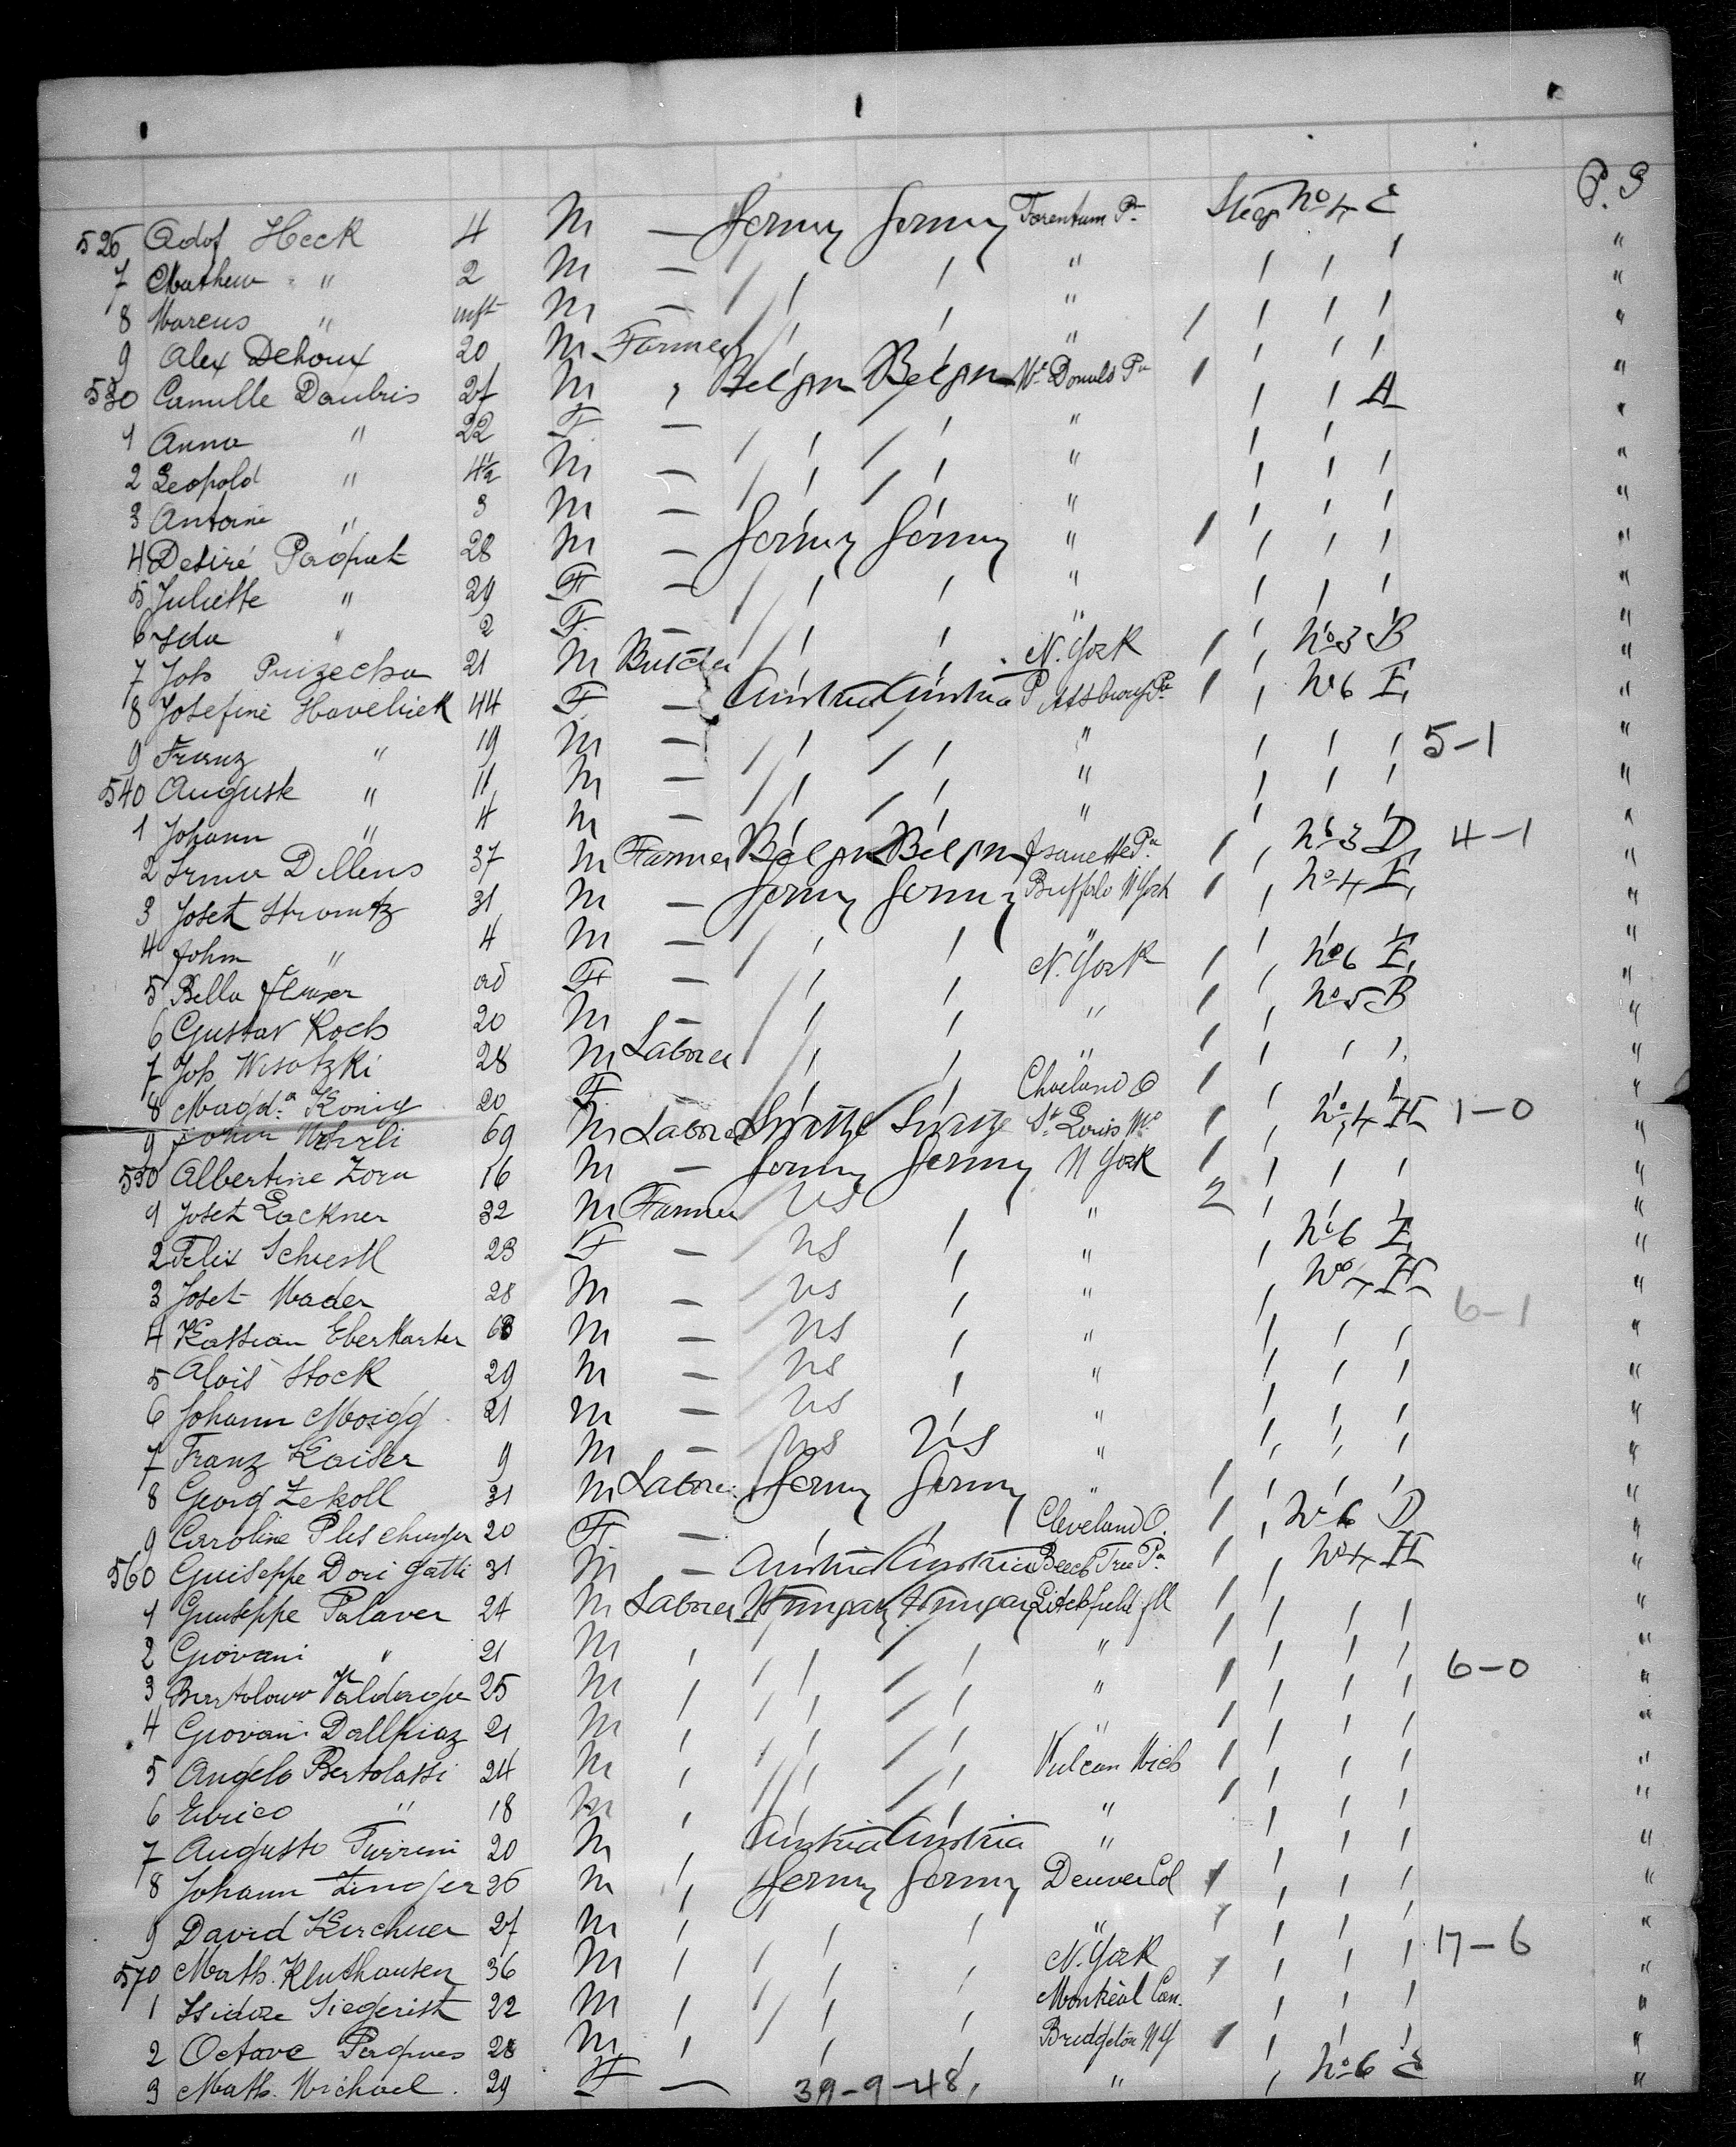 P. S
526 Adof Heck 4 M — Germy Germy Tarentum Pa Steer No 4 E
7 Mathew " 2 M — / / / " / / / "
8 Marcus " inft M — / / / " / / / / "
9 Alex Dehoux 20 M Farmer / / / " / / / "
530 Camille Daubris 27 M , Belgm Belgm Mc Donuls Pa / / / A "
1 Anna " 22 F — / / / / " / / "
2 Leopold " 4½ M — / / / / " / / / "
3 Antoine " 3 M — / / / / " / / / "
4 Desiré Paquet 28 M — Germy Germy " / / / / "
5 Juliette " 29 F — / / / " / / / "
6 Ida " 2 F — / / / " / / / "
7 Joh 21 M Butcher / / / N. York / , No 3 B "
8 Josefine Havelicek 44 F — Austria Austria Pittsburg Pa / , No 6 E "
9 Franz " 19 M — / / / / " / / / 5-1 "
540 August " 11 M — / / / / " / / / "
1 Johann " 4 M — / / / / " / / / "
2 Irma Dillens 37 M Farmer Belgm Belgm Jeanette Pa / , No 3 D 4-1 "
3 Josef 31 M — Germy Germy Buffalo N York / , No 4 E "
4 John " 4 M — / / / " / / / "
5 Bella 20 F — / / / N. York / , No 6 E "
6 Gustav Koch 20 M — / / / " / , No 5 B "
7 Joh Wisotzki 28 M Laborer / / / " / / / / "
8 Magda König 20 F — / / / Cleveland O / / / / "
9 John Wehrli 69 M Laborer St Louis Mo / , No 4 H 1-0 "
550 Albertine Zorn 16 M — Germy Germy N York / / / / "
1 Josef Lackner 32 M Farmer US / " 2 / / / "
2 Felix Schiestl 23 F — US / " , No 6 E "
3 Josef Mader 28 M — US / " , No 4 H "
4 Kassian Eberharter 63 M — US / " / / / 6-1 "
5 Alois Stock 29 M — US / " / / / "
6 Johann Moigg 21 M — US / " / / / "
7 Franz Kaiser 9 M — US US " / / / "
8 Georg Zekoll 31 M Laborer Germy Germy " / / / / "
9 Caroline 20 F — / / Cleveland O. / , No 6 D "
560 Guiseppe Dorigatti 31 M — Austria Austria Beech Tree Pa / , No 4 H "
1 Giuseppe Palaver 24 M Laborer Hungary Hungary Litchfield Ill / / / / "
2 Giovani " 21 M , / / / / " / / / / "
3 Bartolomo 25 M , / / / / " / / / / 6-0 "
4 Giovani Dallpiaz 21 M , / / / / " / / / / "
5 Angelo Bertolassi 24 M , / / / / Vulcan Mich / / / / "
6 Enrico " 18 M , / / / / " / / / / "
7 Augusto Turrini 20 M , Austria Austria " / / / "
8 Johann Zinger 26 M , Germy Germy Denver Col / / / / "
9 David Kirchner 27 M , / / / " / / / / "
570 Math. Kluthausen 36 M , / / / N. York / / / / 17-6 "
1 Isidore Siegerist 22 M , / / / Montréal Can. / / / "
2 Octave Paques 28 M , / / / Bridgeton N Y / / / / "
3 Math. Michael 29 F — 39-9-48, " , No 6 E "